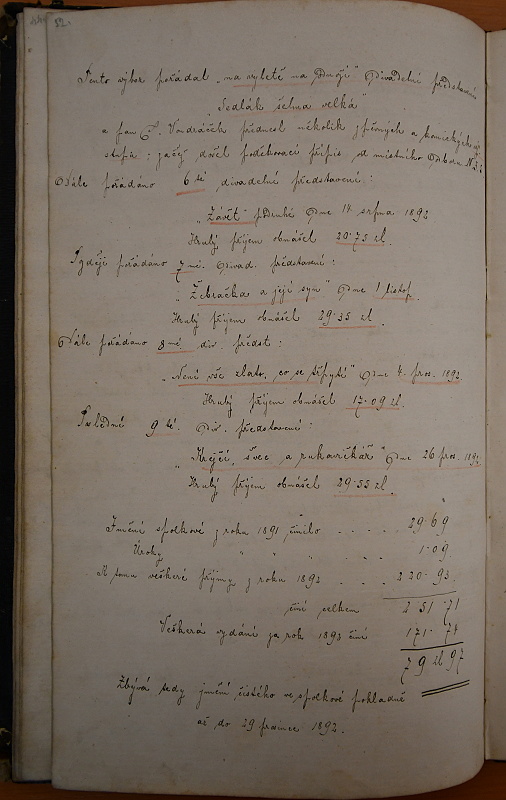 32.
Tento výbor pořádal „na výletě na Podhájí" Divadelní představení
„Sedlák šelma velká"
a pan T. Vondráček přednesl několik zpěvných a komických
začež došel poděkovací přípis od místního Odboru
Dále pořádáno 6té divadelní představení:
„Závěť" podruhé Dne 14 srpna 1892
Hrubý příjem obnášel 20·75 zl.
Později pořádáno 7mé. Divad. představení:
„Žebračka a její syn" Dne 1 listop.
Hrubý příjem obnášel 29·35 zl.
Dále pořádáno 8mé div. předst:
„Není vše zlato, co se třpytí" Dne 4. pros. 1892.
Hrubý příjem obnášel 17·09 zl.
Poslední 9té. Div. představení:
„Krejčí, švec a rukavičkář" Dne 26 pros. 1892
Hrubý příjem obnášel 29·55 zl.
Jmění spolkové z roku 1891 činilo . . . . 29·69
Úroky " " " . . . 1·09
K tomu veškeré příjmy z roku 1892 . . . . 220·93
činí celkem 251·71
Veškerá vydání za rok 1892 činí 171·74
79 zl 97
Zbývá tedy jmění čistého ve spolkové pokladně
až do 29 prosince 1892.